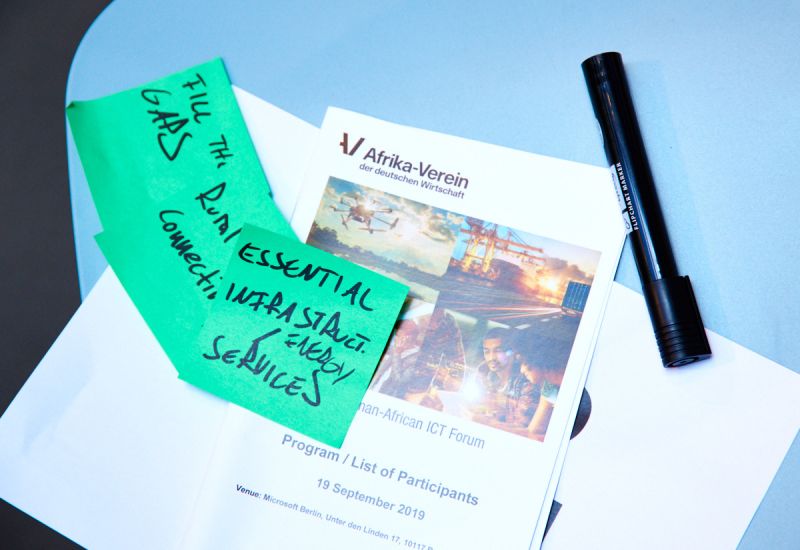 FILL THE
GAPS
Rural
Connecti
ESSENTIAL
INFRASTRUCT.
/ ENERGY
SERVICES
Afrika-Verein
der deutschen Wirtschaft
man-African ICT Forum
Program / List of Participants
19 September 2019
Venue: Microsoft Berlin, Unter den Linden 17, 10117
FLIPCHART MARKER